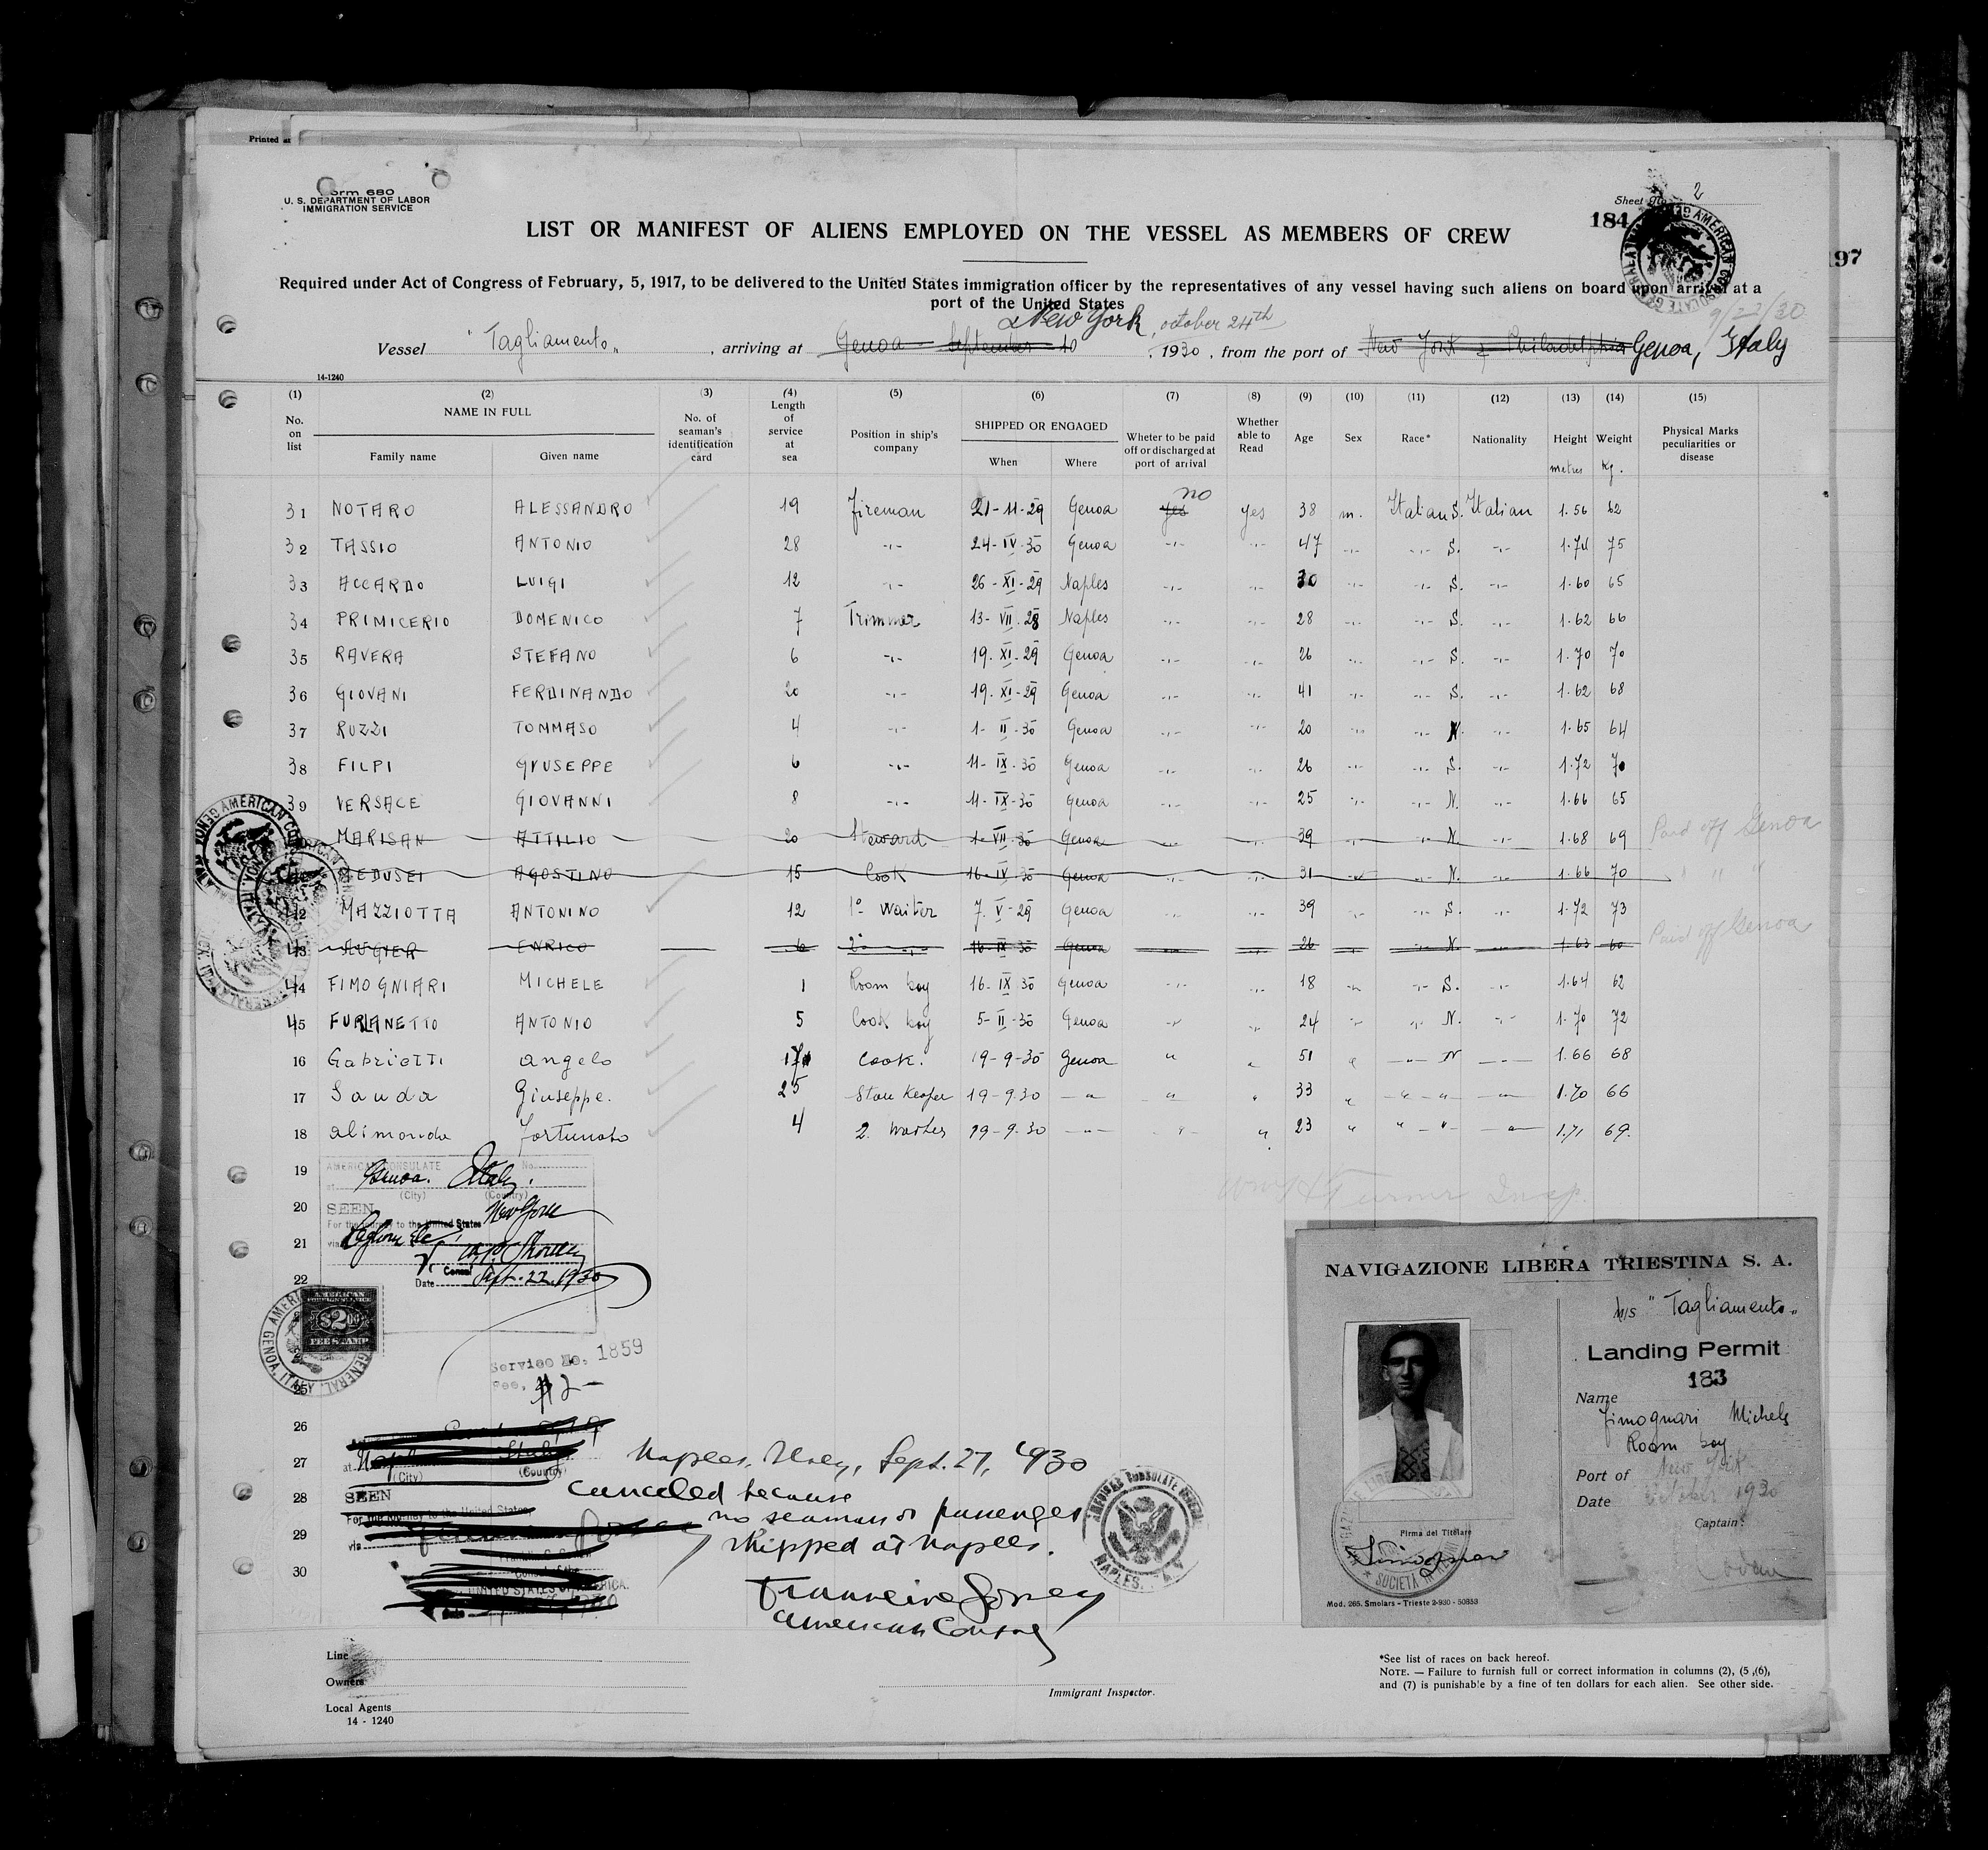 Printed at
Form 680
U. S. DEPARTMENT OF LABOR
IMMIGRATION SERVICE
Sheet No. 2
184
97
LIST OR MANIFEST OF ALIENS EMPLOYED ON THE VESSEL AS MEMBERS OF CREW
Required under Act of Congress of February, 5, 1917, to be delivered to the United States immigration officer by the representatives of any vessel having such aliens on board upon arrival at a
port of the United States
9/22/30
New York, october 24th
Vessel "Tagliamento", arriving at Genoa September 10, 1930, from the port of New York & Philadelphia Genoa, Italy
14-1240
(1) (2) (3) (4) (5) (6) (7) (8) (9) (10) (11) (12) (13) (14) (15)
No. on list NAME IN FULL Family name Given name No. of seaman's identification card Length of service at sea Position in ship's company SHIPPED OR ENGAGED When Where Wheter to be paid off or discharged at port of arrival Whether able to Read Age Sex Race* Nationality Height metres Weight Kg. Physical Marks peculiarities or disease
no
31 NOTARO ALESSANDRO 19 Fireman 21-11-29 Genoa yes yes 38 m. Italian S. Italian 1.56 62
32 TASSIO ANTONIO 28 -"- 24-IV-30 Genoa -"- -"- 47 -"- -"- S. -"- 1.74 75
33 ACCARDO LUIGI 12 -"- 26-XI-29 Naples -"- -"- 30 -"- -"- S. -"- 1.60 65
34 PRIMICERIO DOMENICO 7 Trimmer 13-VII.28 Naples -"- -"- 28 -"- -"- S. -"- 1.62 66
35 RAVERA STEFANO 6 -"- 19.XI-29 Genoa -"- -"- 26 -"- -"- S. -"- 1.70 70
36 GIOVANI FERDINANDO 20 -"- 19.XI-29 Genoa -"- -"- 41 -"- -"- S. -"- 1.62 68
37 RUZZI TOMMASO 4 -"- 1-II-30 Genoa -"- -"- 20 -"- -"- N. -"- 1.65 64
38 FILPI GIUSEPPE 6 -"- 11-IX-30 Genoa -"- -"- 26 -"- -"- S. -"- 1.72 70
39 VERSACE GIOVANNI 8 -"- 11-IX-30 Genoa -"- -"- 25 -"- -"- N. -"- 1.66 65
MARISAN ATTILIO 20 Steward 1-VII-30 Genoa -"- -"- 39 -"- N. 1.68 69 Paid off Genoa
MEDUSEI AGOSTINO 15 Cook 16-IV-30 Genoa -"- -"- 31 -"- N. 1.66 70 " " "
42 MAZZIOTTA ANTONINO 12 1° Waiter 7.V-29 Genoa -"- -"- 39 -"- -"- S. -"- 1.72 73
43 AUGIER ENRICO 6 2° -"- 16-IX-30 Genoa -"- -"- 26 -"- -"- N. -"- 1.63 60 Paid off Genoa
44 FIMOGNIARI MICHELE 1 Room boy 16-IX-30 Genoa -"- -"- 18 -"- -"- S. -"- 1.64 62
45 FURLANETTO ANTONIO 5 Cook boy 5-II-30 Genoa -"- -"- 24 -"- -"- N. -"- 1.70 72
16 Gabriotti angelo cook. 19-9-30 Genoa " " 51 " -"- N -"- 1.66 68
17 Sauda Giuseppe. 25 Store Keeper 19-9.30 -"- " " 33 " -"-"- -"- 1.70 66
18 alimonda fortunato 4 2. Waiter 19-9.30 -"- -"- " 23 " "-"- -"- 1.71 69.
19
20
21
22
25
26
27
28
29
30
Turner Insp.
AMERICAN CONSULATE No.
at Genoa. Italy.
(City) (Country)
SEEN New York
For the journey to the United States
via
Consul
Date Sept. 22. 1930
AMERICAN FOREIGN SERVICE
$2.00
FEE STAMP
AMERICAN CONSULATE GENERAL GENOA, ITALY
Service No. 1859
Fee, $2-
at Naples Italy
(City) (Country)
SEEN
For the journey to the United States
via
UNITED STATES OF AMERICA.
Naples, Italy, Sept. 27, 1930
Canceled because
no seaman or passenger
shipped at Naples.
American Consul
AMERICAN CONSULATE GENERAL NAPLES
NAVIGAZIONE LIBERA TRIESTINA S. A.
M/S "Tagliamento"
Landing Permit
183
Name
Fimognari Michele
Room boy
Port of New York
Date October 1930
Captain:
Firma del Titolare
Mod. 265. Smolars - Trieste 2-930 - 50353
Line
Owners
Local Agents
14 - 1240
Immigrant Inspector.
*See list of races on back hereof.
NOTE. — Failure to furnish full or correct information in columns (2), (5 ,(6),
and (7) is punishable by a fine of ten dollars for each alien. See other side.